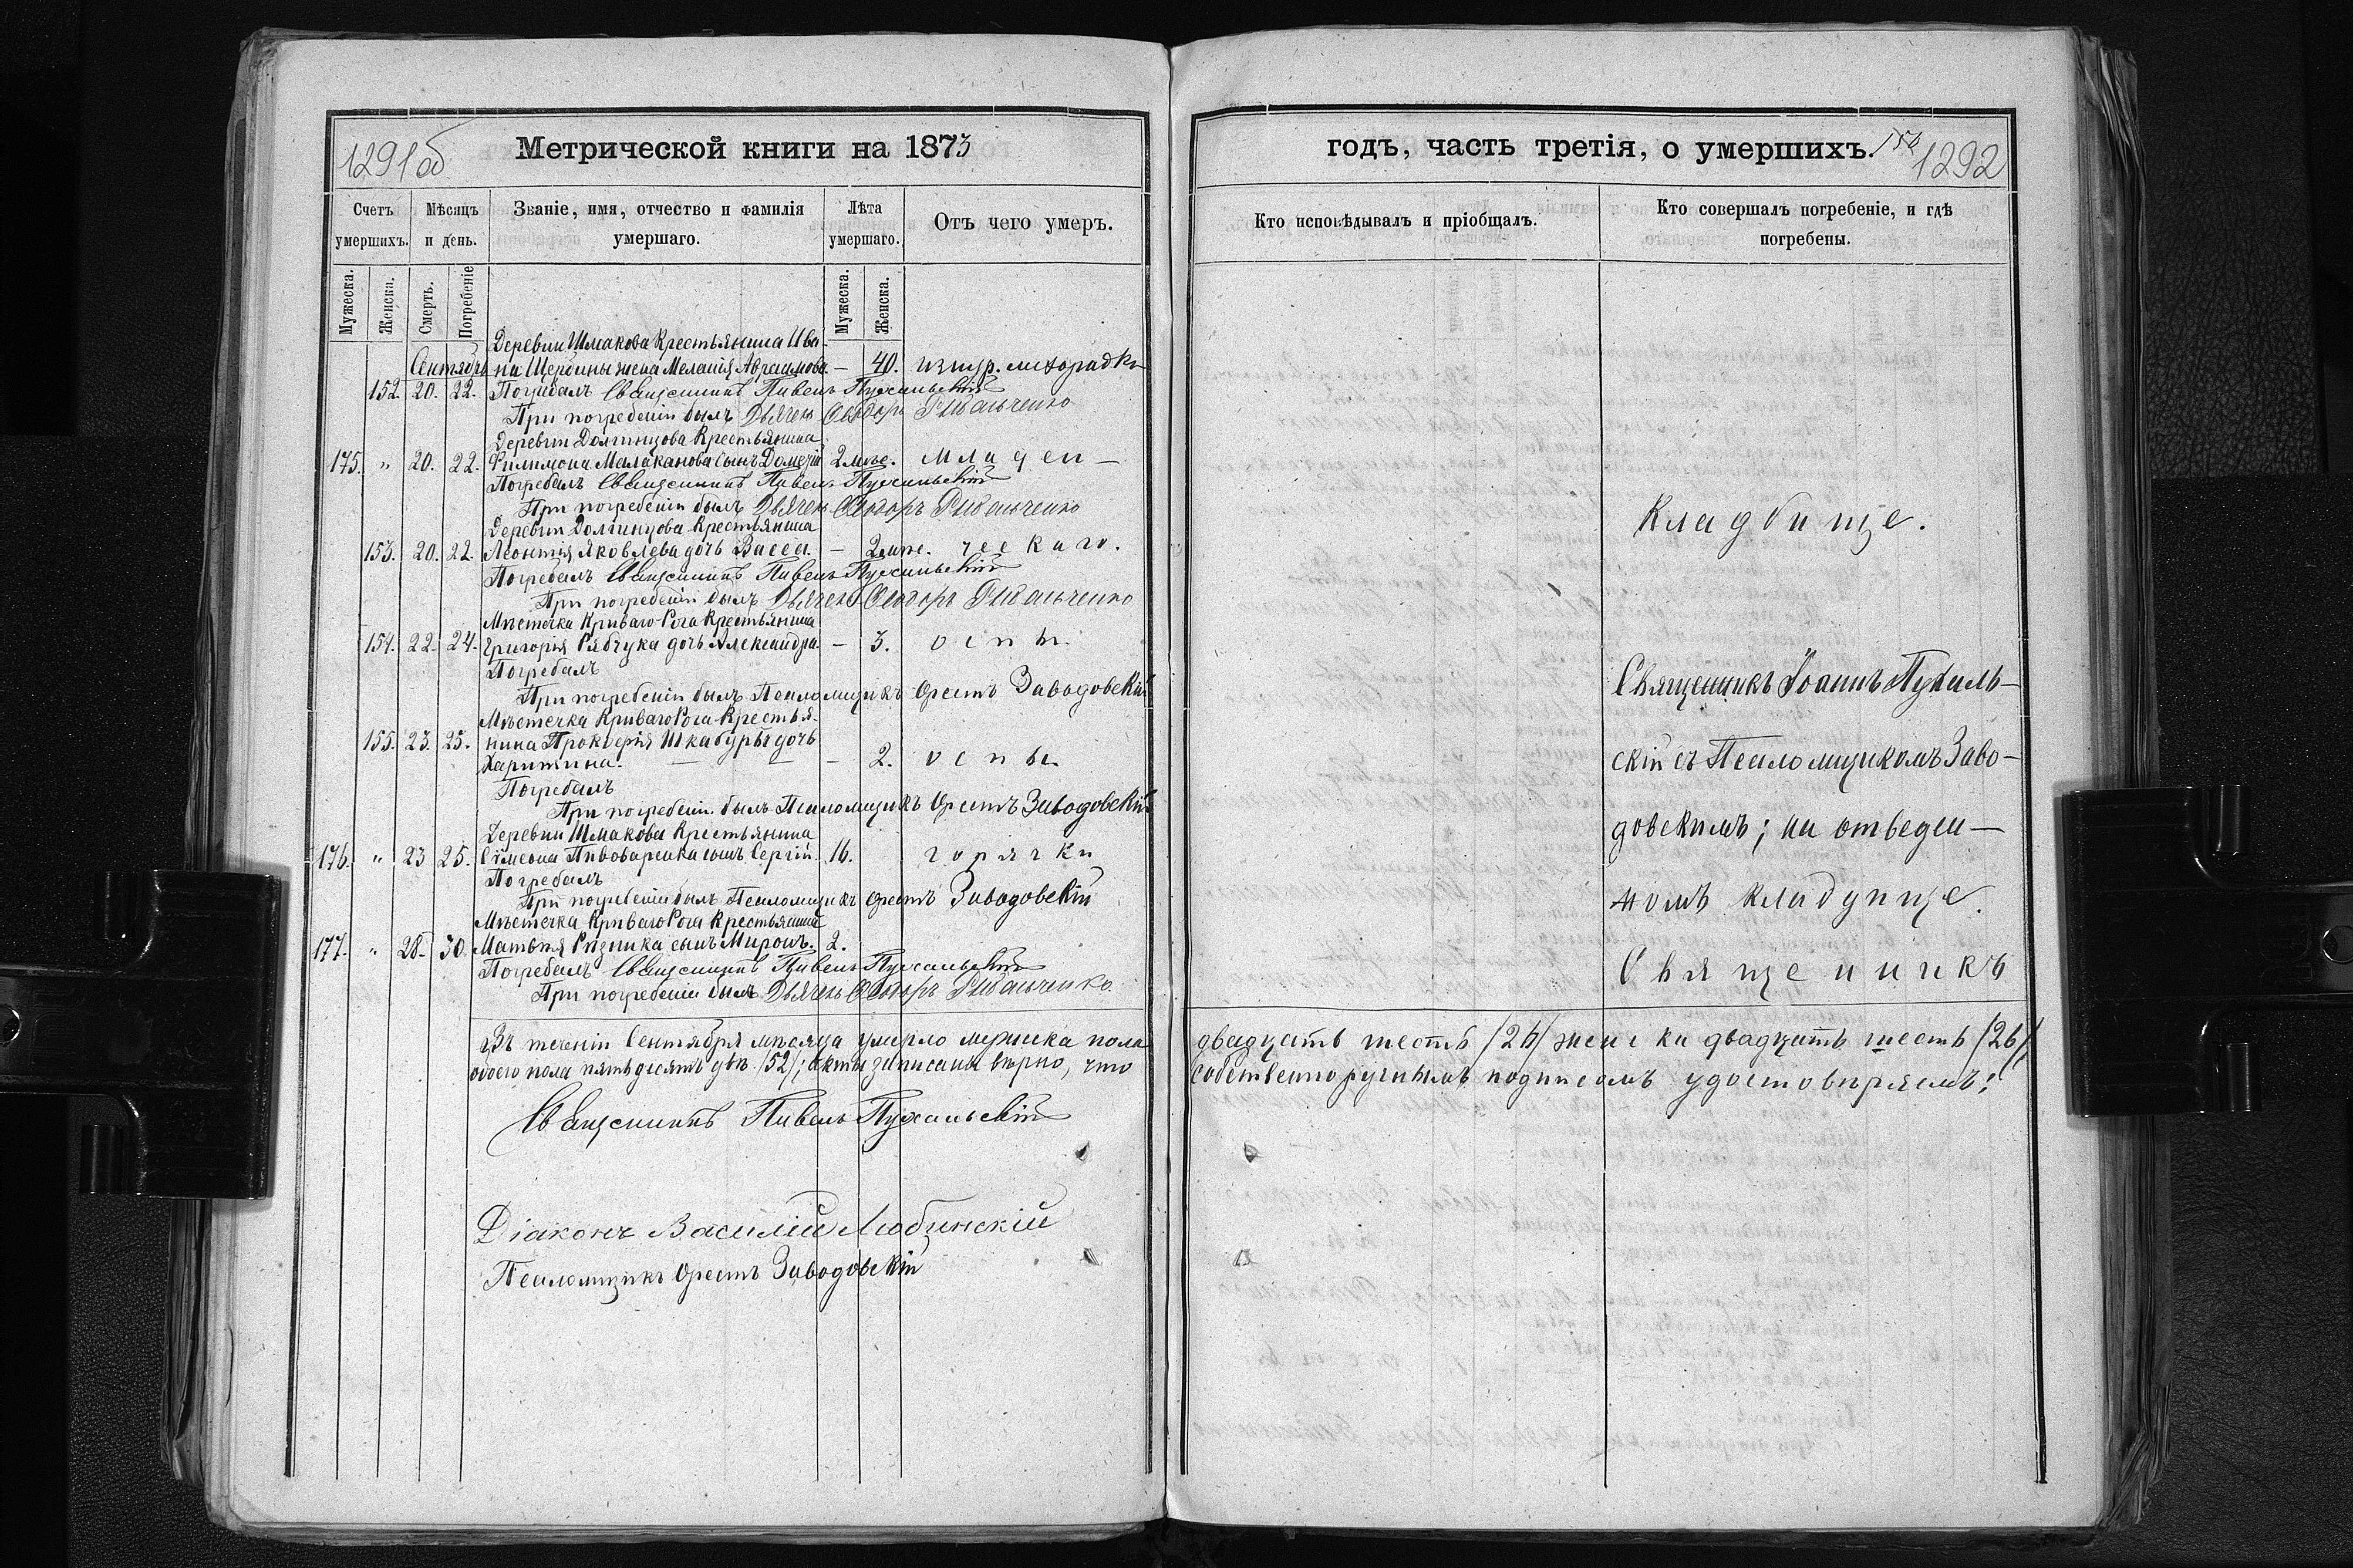 1291 об
Метрической книги на 1873
Счетъ умершихъ.
Мѣсяцъ и день.
Званіе, имя, отчество и фамилія умершаго.
Лѣта умершаго.
Отъ чего умеръ.
Мужеска.
Женска.
Смерть.
Погребеніе
Мужеска.
Женска.
Деревни Шмакова Крестьянина Ива-
Сентябрь на Щербины жена Меланія Авраамова — 40.
лихорадки
152. 20. 22. Погребалъ Священникъ Павелъ Пухальскій
При погребеніи былъ Дьячекъ Ѳеодоръ Рыбальченко
Деревни Долгинцова Крестьянина
175. " 20. 22. Филимона Малаканова сынъ Дометій 2 мѣс. младен—
Погребалъ Священникъ Павелъ Пухальскій
При погребеніи былъ Дьячекъ Ѳеодоръ Рыбальченко
Деревни Долгинцова Крестьянина
153. 20. 22. Леонтія Яковлева дочь Васса. — 2 мѣс. ческаго.
Погребалъ Священникъ Павелъ Пухальскій
При погребеніи былъ Дьячекъ Ѳеодоръ Рыбальченко
Мѣстечка Криваго-Рога Крестьянина
154. 22. 24. Григорія Рябчука дочь Александра. — 3. оспы
Погребалъ
При погребеніи былъ Псаломщикъ Орестъ Заводовскій
Мѣстечка Криваго Рога Крестья-
155. 23. 25. нина Прокофія Шкабуры дочь
Харитина. — — — 2. оспы
Погребалъ
При погребеніи былъ Псаломщикъ Орестъ Заводовскій
Деревни Шмакова Крестьянина
176. " 23 25. Сѵмеона Пивоваренка сынъ Сергій. 16. горячки
Погребалъ
При погребеніи былъ Псаломщикъ Орестъ Заводовскій
Мѣстечка Криваго Рога Крестьянина
177. " 28. 30. Матвѣя Ризника сынъ Миронъ. 2.
Погребалъ Священникъ Павелъ Пухальскій
При погребеніи былъ Дьячекъ Ѳеодоръ Рыбальченко.
Въ теченіи Сентября мѣсяца умерло мужеска пола
обоего пола пятьдесятъ два /52/; акты записаны вѣрно, что
Священникъ Павелъ Пухальскій
Діаконъ Василій Любинскій
Псаломщикъ Орестъ Заводовскій
годъ, часть третія, о умершихъ.
1292
Кто исповѣдывалъ и пріобщалъ.
Кто совершалъ погребеніе, и гдѣ погребены.
Кладбище.
Священникъ Іоаннъ Пухаль—
скій съ Псаломщикомъ Заво—
довскимъ; на отведен—
номъ кладбище.
Священникъ
двадцать шесть /26/ женска двадцать шесть /26/
собственноручнымъ подписомъ удостовѣряемъ: